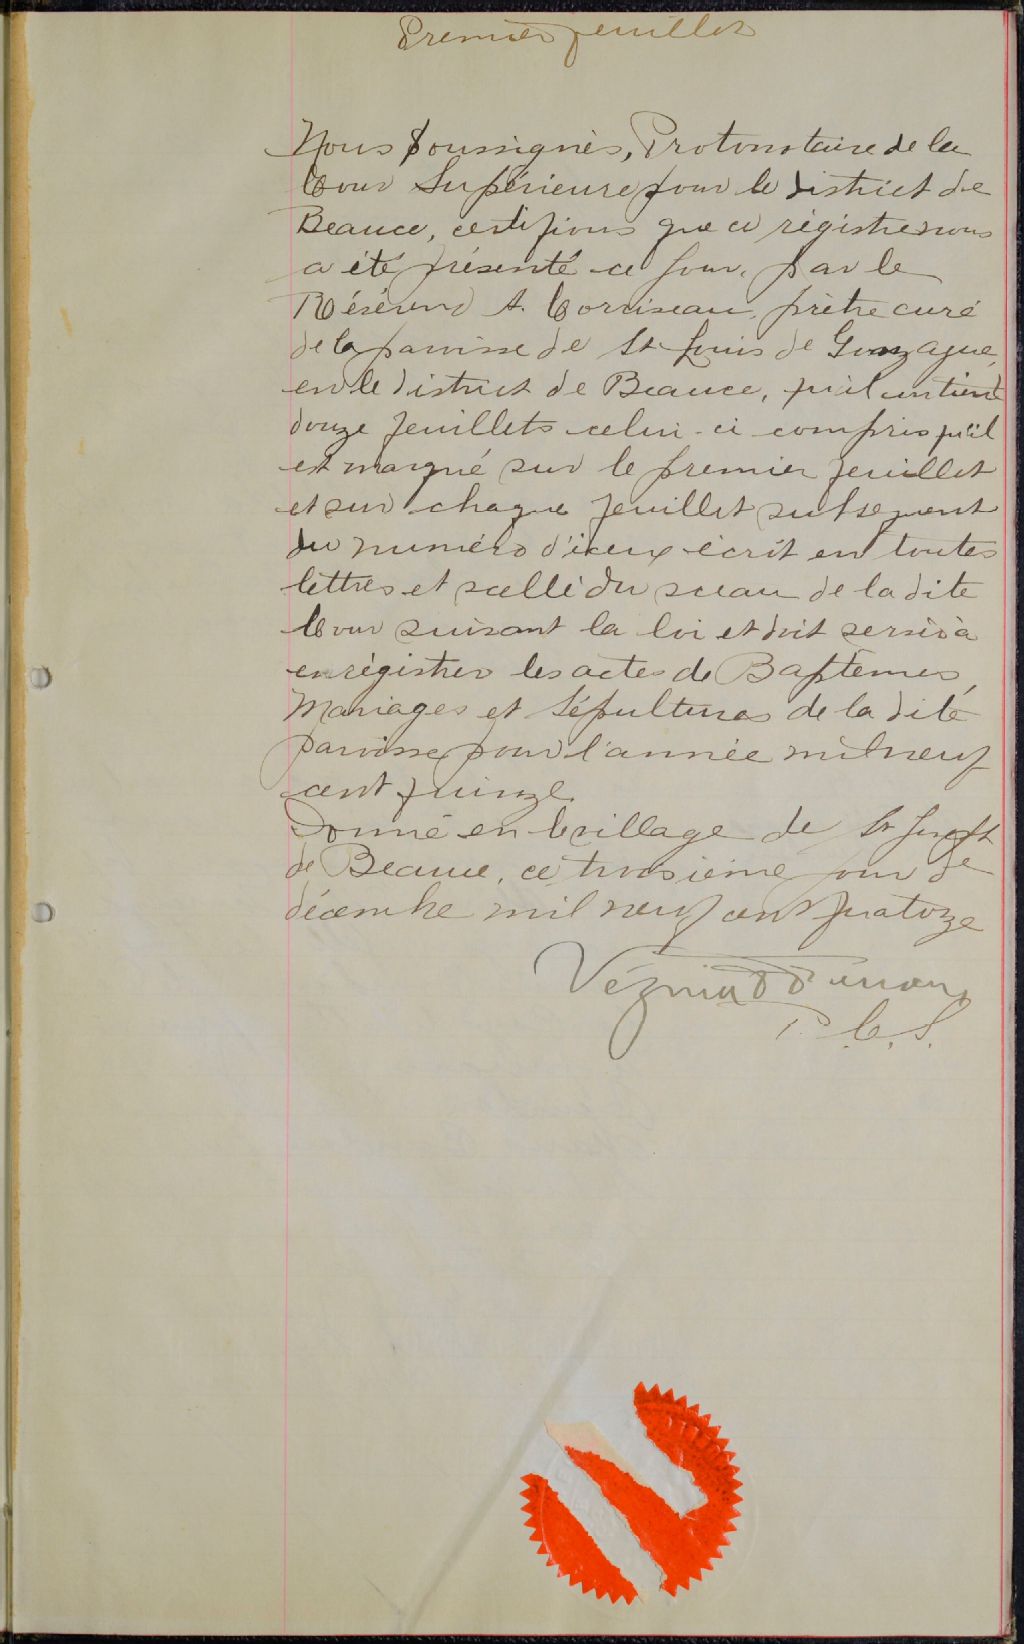 Premier feuillet
Nous Soussignés, Protonotaire de la
Cour Supérieure pour le district de
Beauce, certifions que ce régistre nous
a été présenté ce jour, par le
Révérend A. Corriveau, prêtre curé
de la paroisse de St Louis de Gonzague,
en le district de Beauce, qu'il contient
douze feuillets celui-ci compris qu'il
est marqué sur le premier feuillet
et sur chaque feuillet subsequent
du numéro d'iceux écrit en toutes
lettres et scellé du sceau de la dite
Cour suivant la loi et doit servir à
enrégistrer les actes de Baptemes,
Mariages et Sépultures de la dite
paroisse pour l'année mil neuf
cent quinze.
Donné en le village de St Joseph
de Beauce, ce troisième jour de
décembre mil neuf cent quatorze
Vézina
P. C. S.